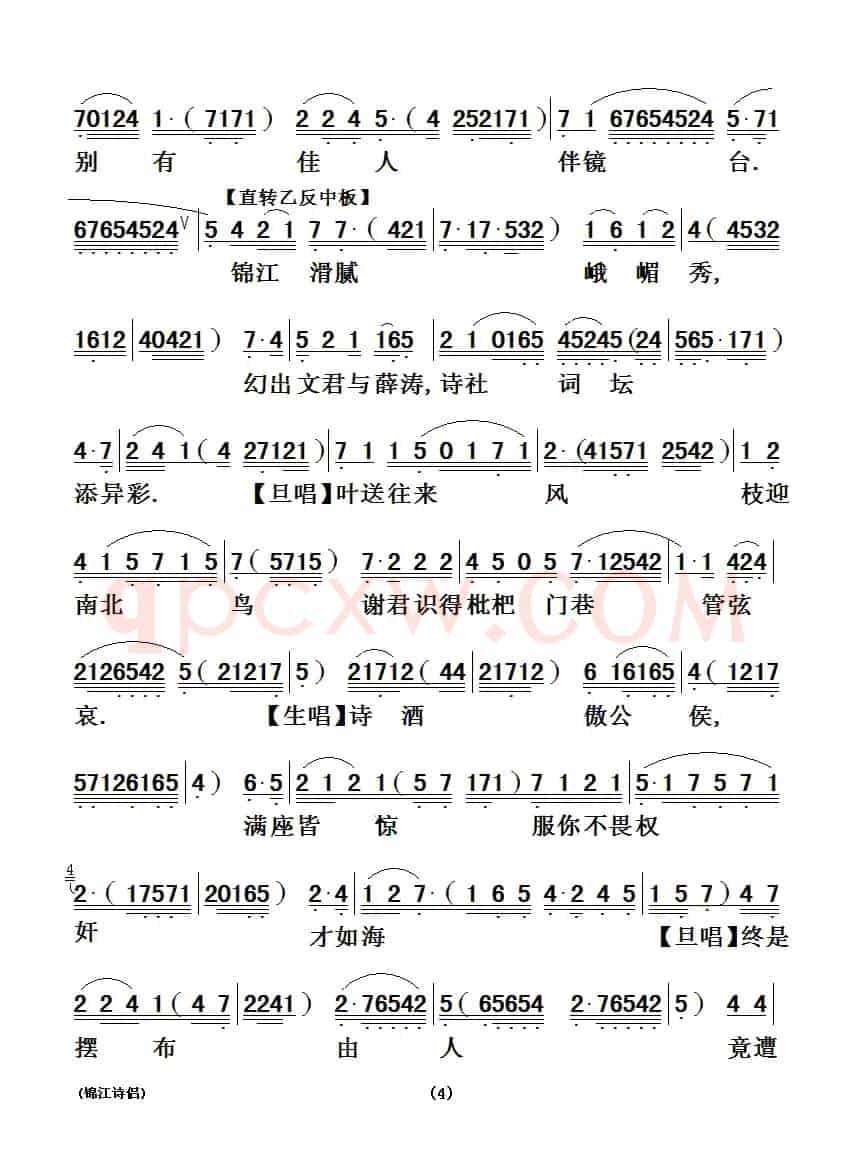 70124 1·( 7171 ) 2 2 4 5·( 4 252171 ) 7 1 67654524 5·71
别 有 佳 人 伴镜 台.
【直转乙反中板】
67654524 V 5 4 2 1 7 7·( 421 7·17·532 ) 1 6 1 2 4( 4532
锦江 滑腻 峨 嵋 秀,
1612 40421 ) 7·4 5 2 1 165 2 1 0165 45245(24 565·171 )
幻出文君与薛涛,诗社 词 坛
4·7 2 4 1( 4 27121 ) 7 1 1 5 0 1 7 1 2·(41571 2542 ) 1 2
添异彩. 【旦唱】叶送往来 风 枝迎
4 1 5 7 1 5 7( 5715 ) 7·2 2 2 4 5 0 5 7·12542 1·1 424
南北 鸟 谢君识得枇杷 门巷 管弦
qpcxw.COM
2126542 5( 21217 5 ) 21712( 44 21712 ) 6 16165 4( 1217
哀. 【生唱】诗 酒 傲公 侯,
57126165 4 ) 6·5 2 1 2 1( 5 7 171 ) 7 1 2 1 5·1 7 5 7 1
满座皆 惊 服你不畏权
4
2·( 17571 20165 ) 2·4 1 2 7·( 1 6 5 4·2 4 5 1 5 7 ) 4 7
奸 才如海 【旦唱】终是
2 2 4 1( 4 7 2241 ) 2·76542 5( 65654 2·76542 5 ) 4 4
摆 布 由 人 竟遭
(锦江诗侣) (4)